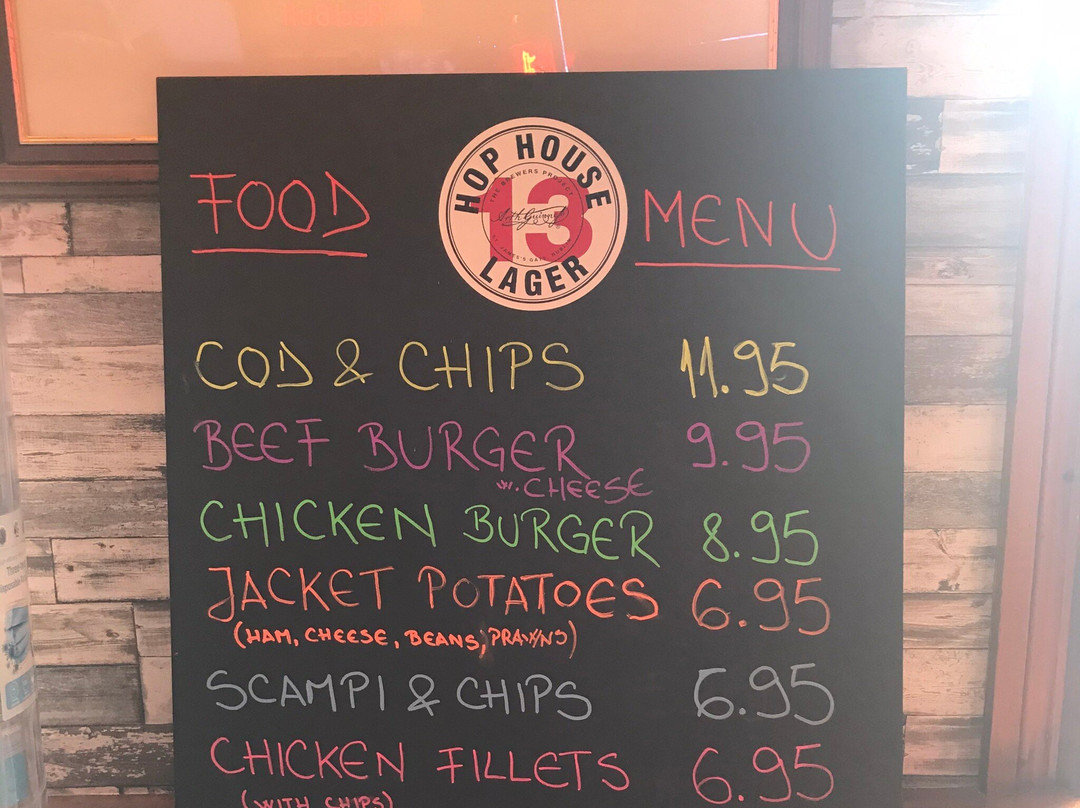 FOOD
HOP HOUSE
THE BREWERS PROJECT
13
LAGER
MENU
COD & CHIPS 11.95
BEEF BURGER 9.95
w. CHEESE
CHICKEN BURGER 8.95
JACKET POTATOES 6.95
(HAM, CHEESE, BEANS, PRAWNS)
SCAMPI & CHIPS 6.95
CHICKEN FILLETS 6.95
(WITH CHIPS)